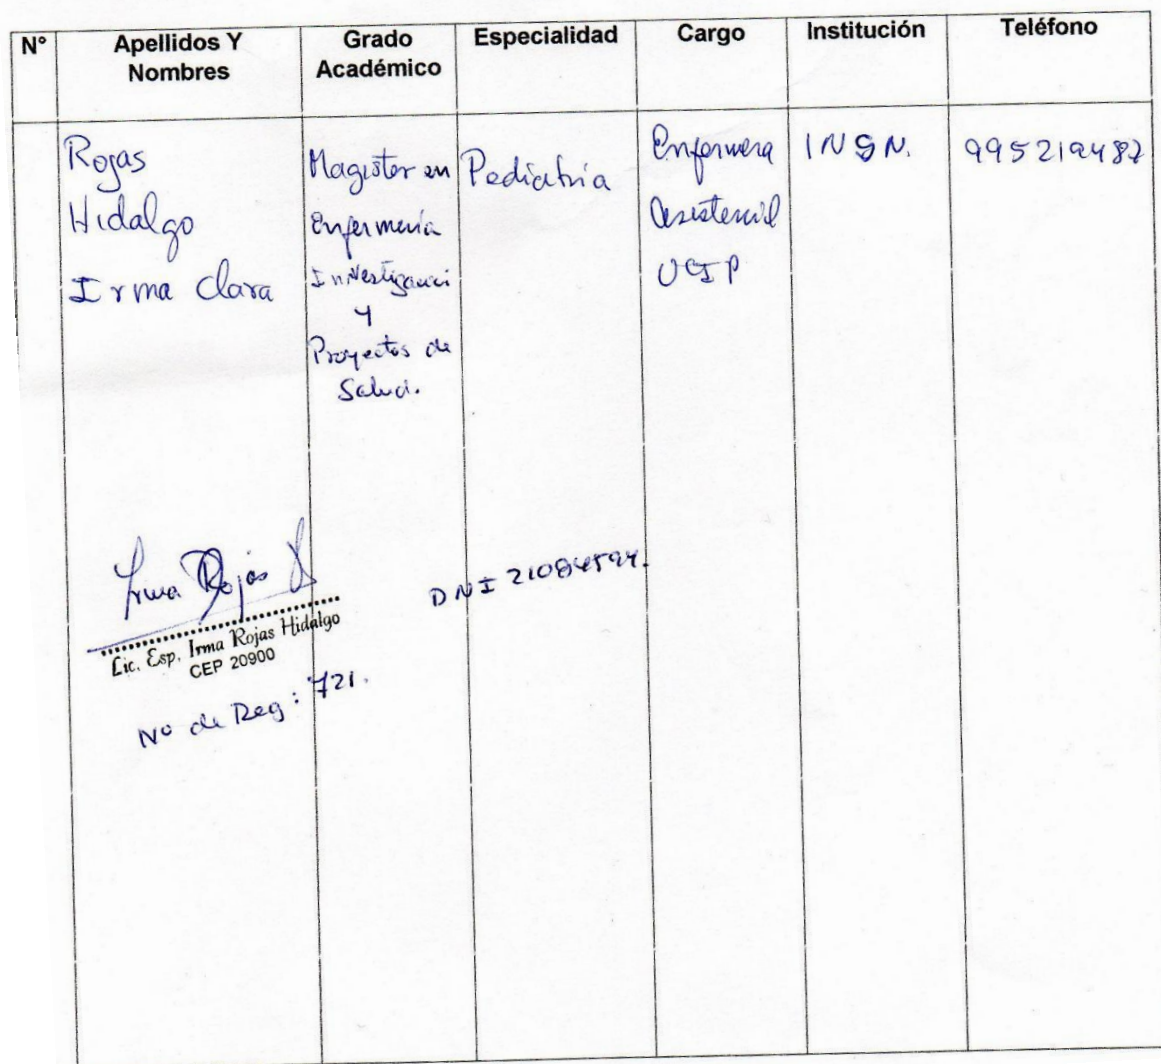 N° Apellidos Y Nombres Grado Académico Especialidad Cargo Institución Teléfono
Rojas
Hidalgo
Irma Clara
Magister en
Enfermería
Investigacion
y
Proyectos de
Salud.
Pediatria
Enfermera
Asistencial
UCIP
INSN.
995219482
Irma Rojas H
Lic. Esp. Irma Rojas Hidalgo
CEP 20900
N° de Reg: 721.
DNI